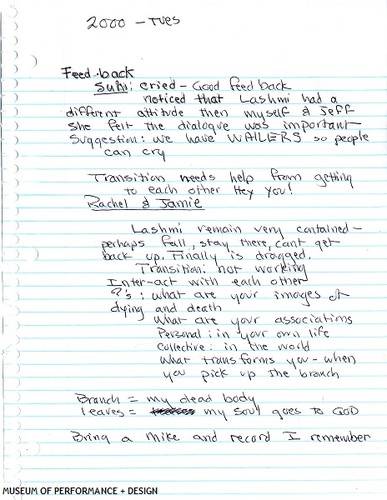 2000 - TUES
Feed-back
Suhi: cried - Good feed back
noticed that Lashmi had a
different attitude then myself & Jeff
She felt the dialogue was important
Suggestion: we have WAILERS so people
can cry
Transition needs help from getting
to each other Hey you!
Rachel & Jamie
Lashmi remain very contained -
perhaps fall, stay there, cant get
back up. Finally is dragged.
Transition: not working
Inter-act with each other
?'s: what are your images of
dying and death
What are your associations
Personal: in your own life
Collective: in the world
What transforms you - when
you pick up the branch
Branch = my dead body
leaves = my soul goes to GOD
Bring a mike and record I remember
MUSEUM OF PERFORMANCE + DESIGN